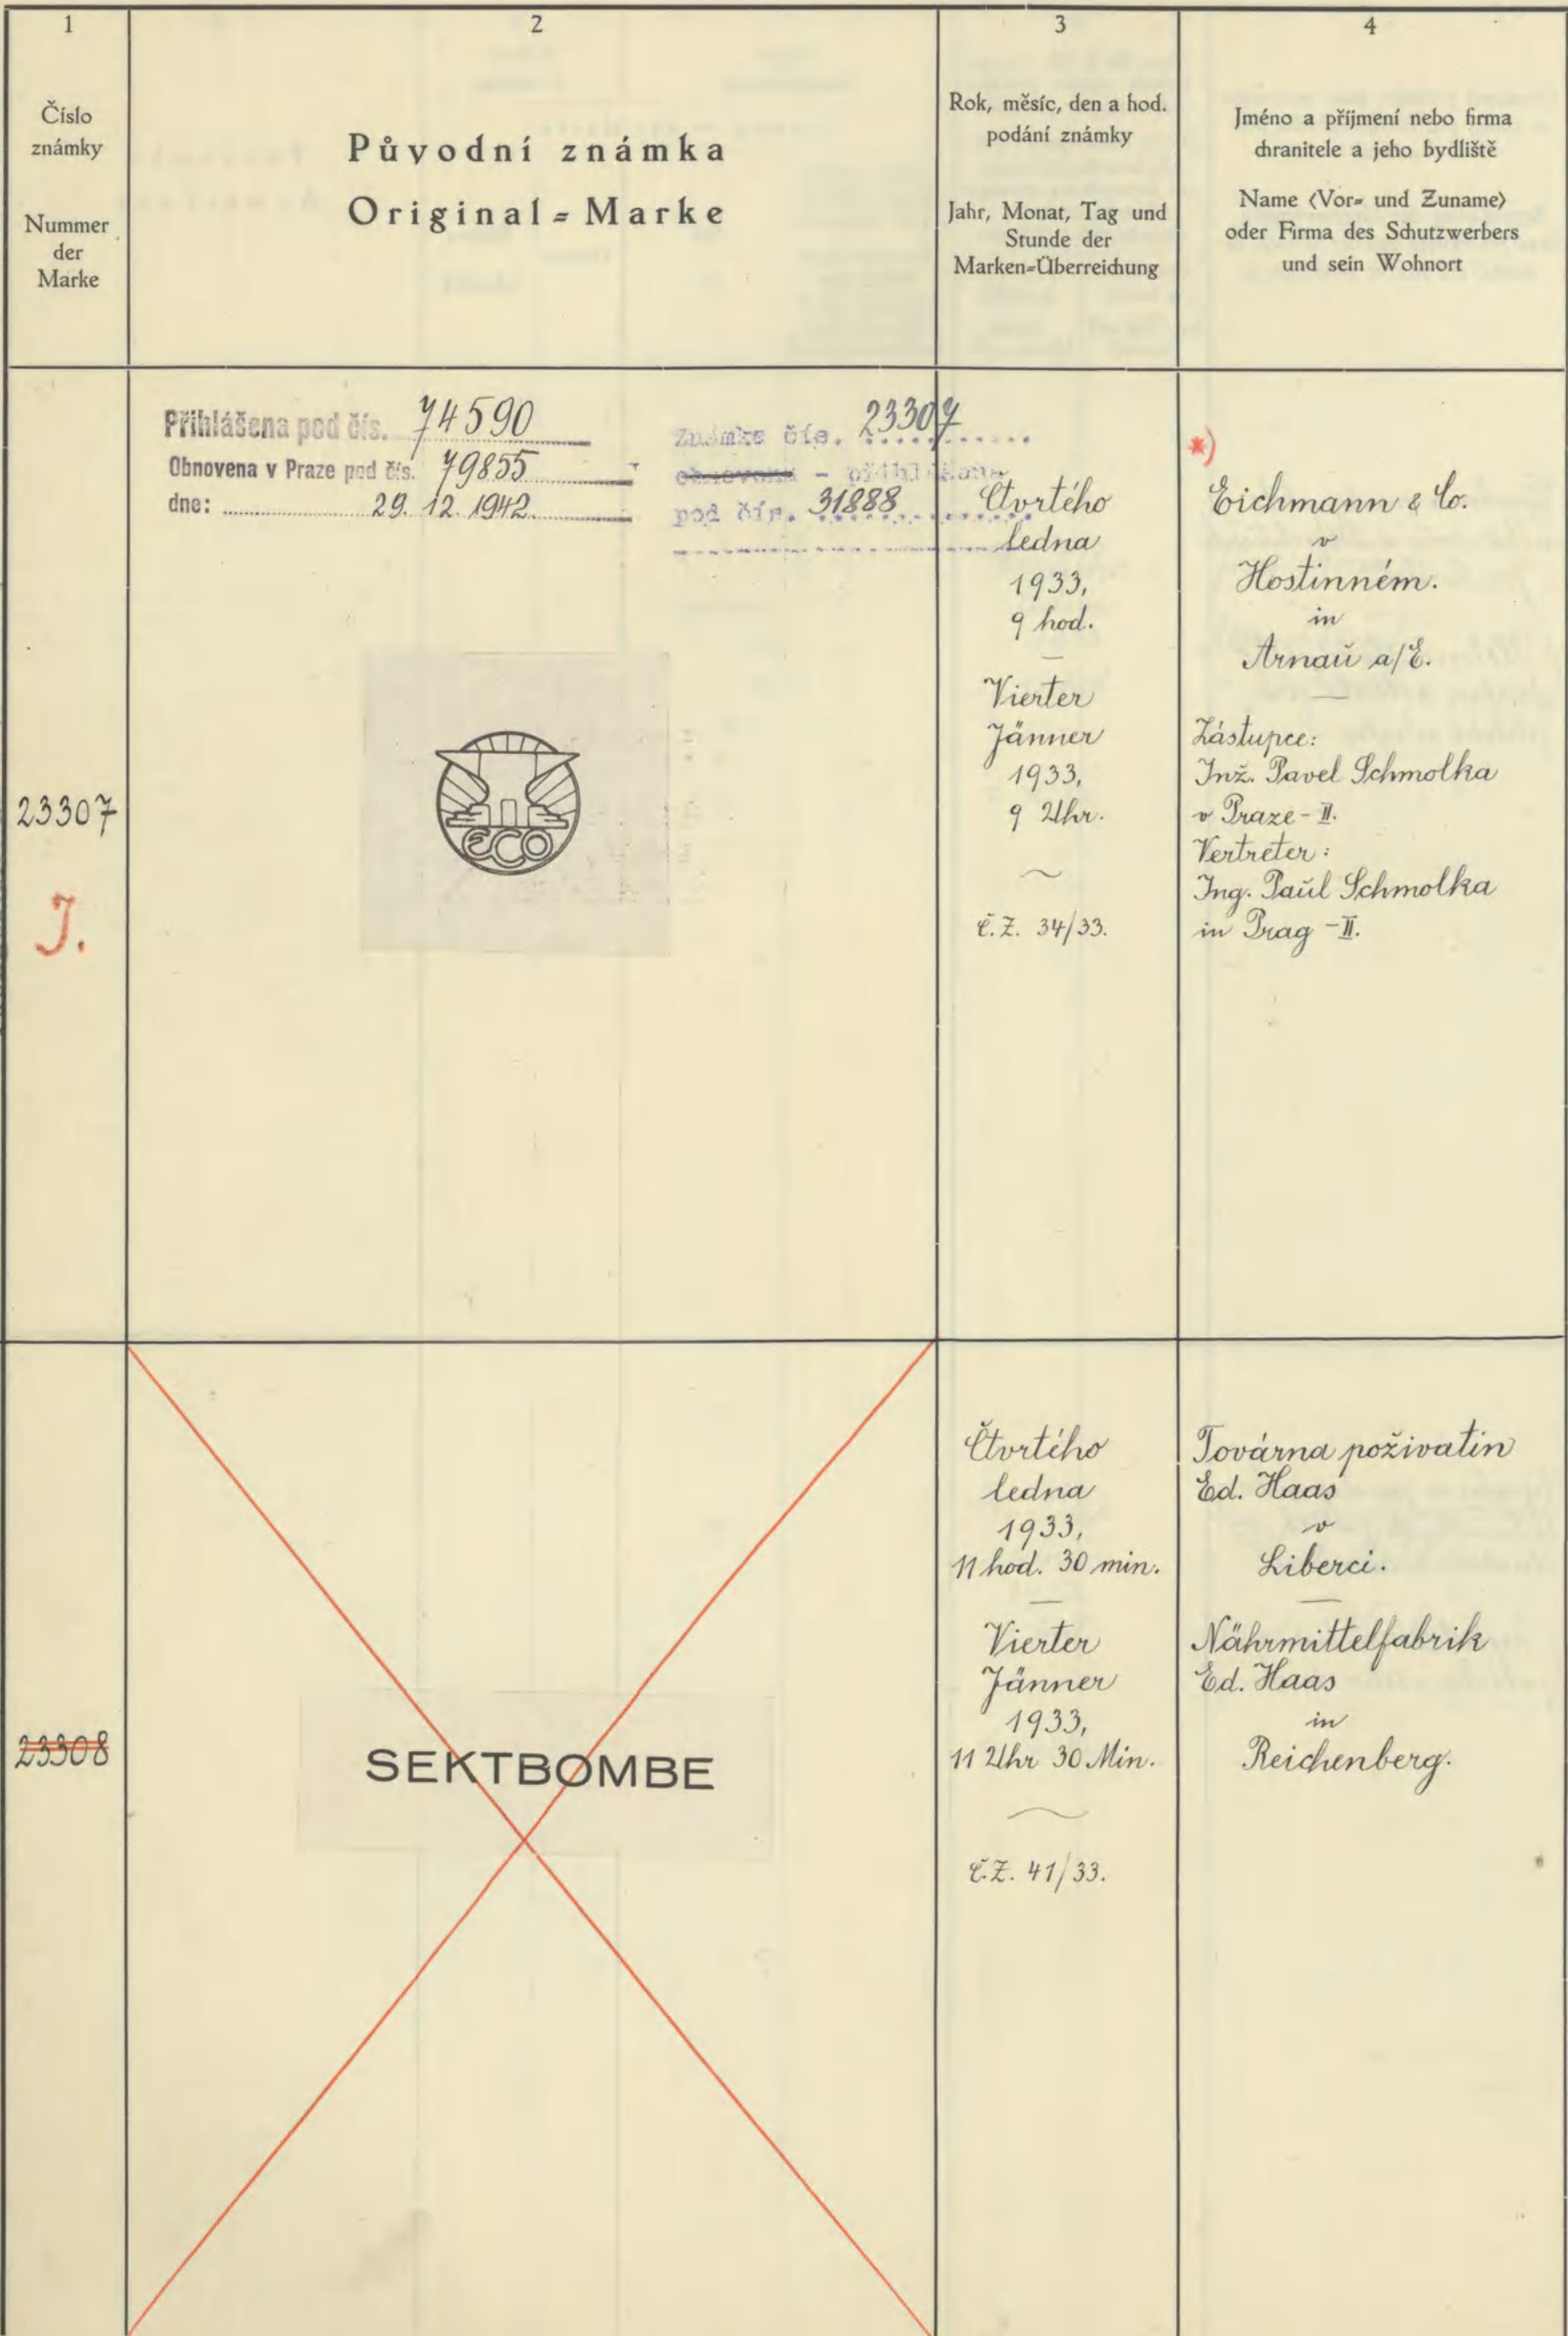 1
Číslo
známky
Nummer
der
Marke
2
Původní známka
Original=Marke
3
Rok, měsíc, den a hod.
podání známky
Jahr, Monat, Tag und
Stunde der
Marken=Überreichung
4
Jméno a příjmení nebo firma
chranitele a jeho bydliště
Name (Vor= und Zuname)
oder Firma des Schutzwerbers
und sein Wohnort
23307
J.
Přihlášena pod čís. 74590
Obnovena v Praze pod čís. 79855
dne: 29. 12. 1942.
Známka čís. 23307
obnovena - přihlášena
pod čís. 31888
ECO
Čtvrtého
ledna
1933,
9 hod.
Vierter
Jänner
1933,
9 Uhr.
Č.Z. 34/33.
*)
Eichmann & Co.
v
Hostinném.
in
Arnau a/E.
Zástupce:
Inž. Pavel Schmolka
v Praze - II.
Vertreter:
Ing. Paul Schmolka
in Prag - II.
23308
SEKTBOMBE
Čtvrtého
ledna
1933,
11 hod. 30 min.
Vierter
Jänner
1933,
11 Uhr 30 Min.
Č.Z. 41/33.
Továrna poživatin
Ed. Haas
v
Liberci.
Nährmittelfabrik
Ed. Haas
in
Reichenberg.